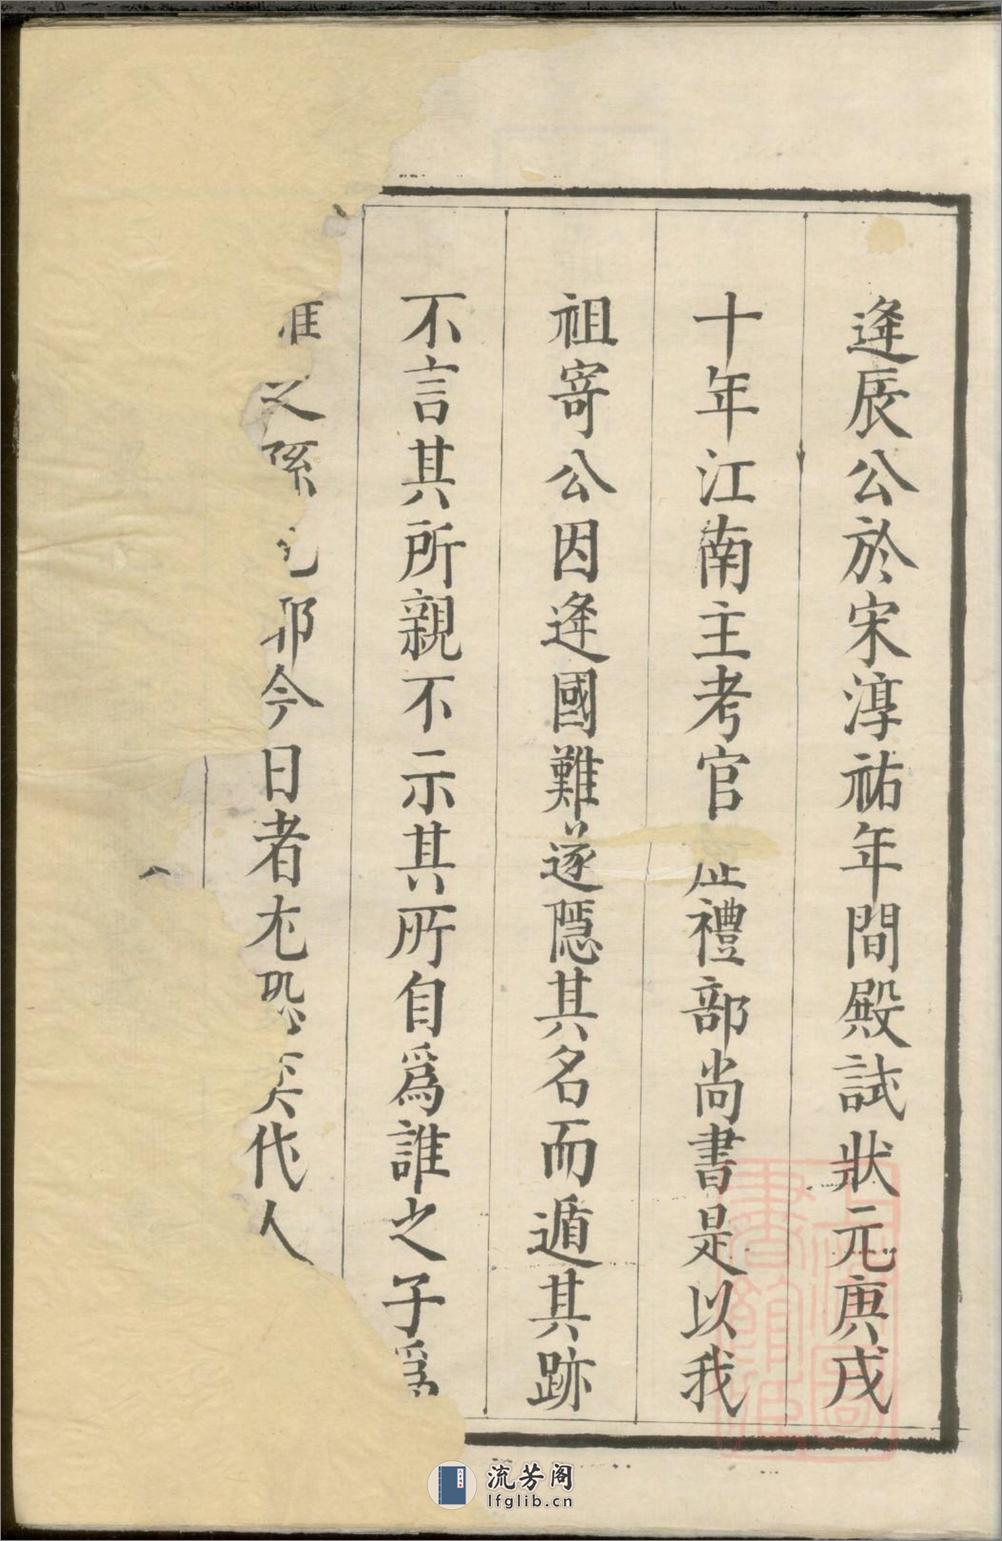 逢辰公於宋淳祐年間殿試狀元庚戌
十年江南主考官禮部尚書是以我
祖寄公因逢國難遂隱其名而遁其跡
不言其所親不示其所自爲誰之子爲
誰之孫也耶今日者尤恐奕代人
上海圖書館藏
流芳阁
lfglib.cn